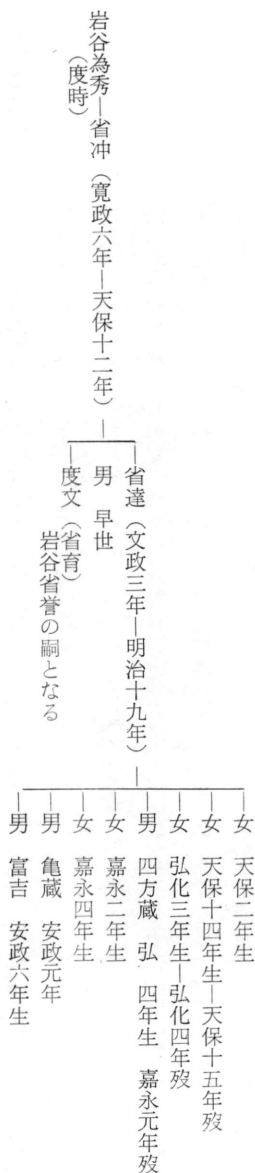 岩谷為秀―省冲（寛政六年―天保十二年）
（度時）
省達（文政三年―明治十九年）
男 早世
度文（省育）
岩谷省誉の嗣となる
女 天保二年生
女 天保十四年生―天保十五年歿
女 弘化三年生―弘化四年歿
男 四方蔵 弘 四年生 嘉永元年歿
女 嘉永二年生
女 嘉永四年生
男 亀蔵 安政元年
男 富吉 安政六年生